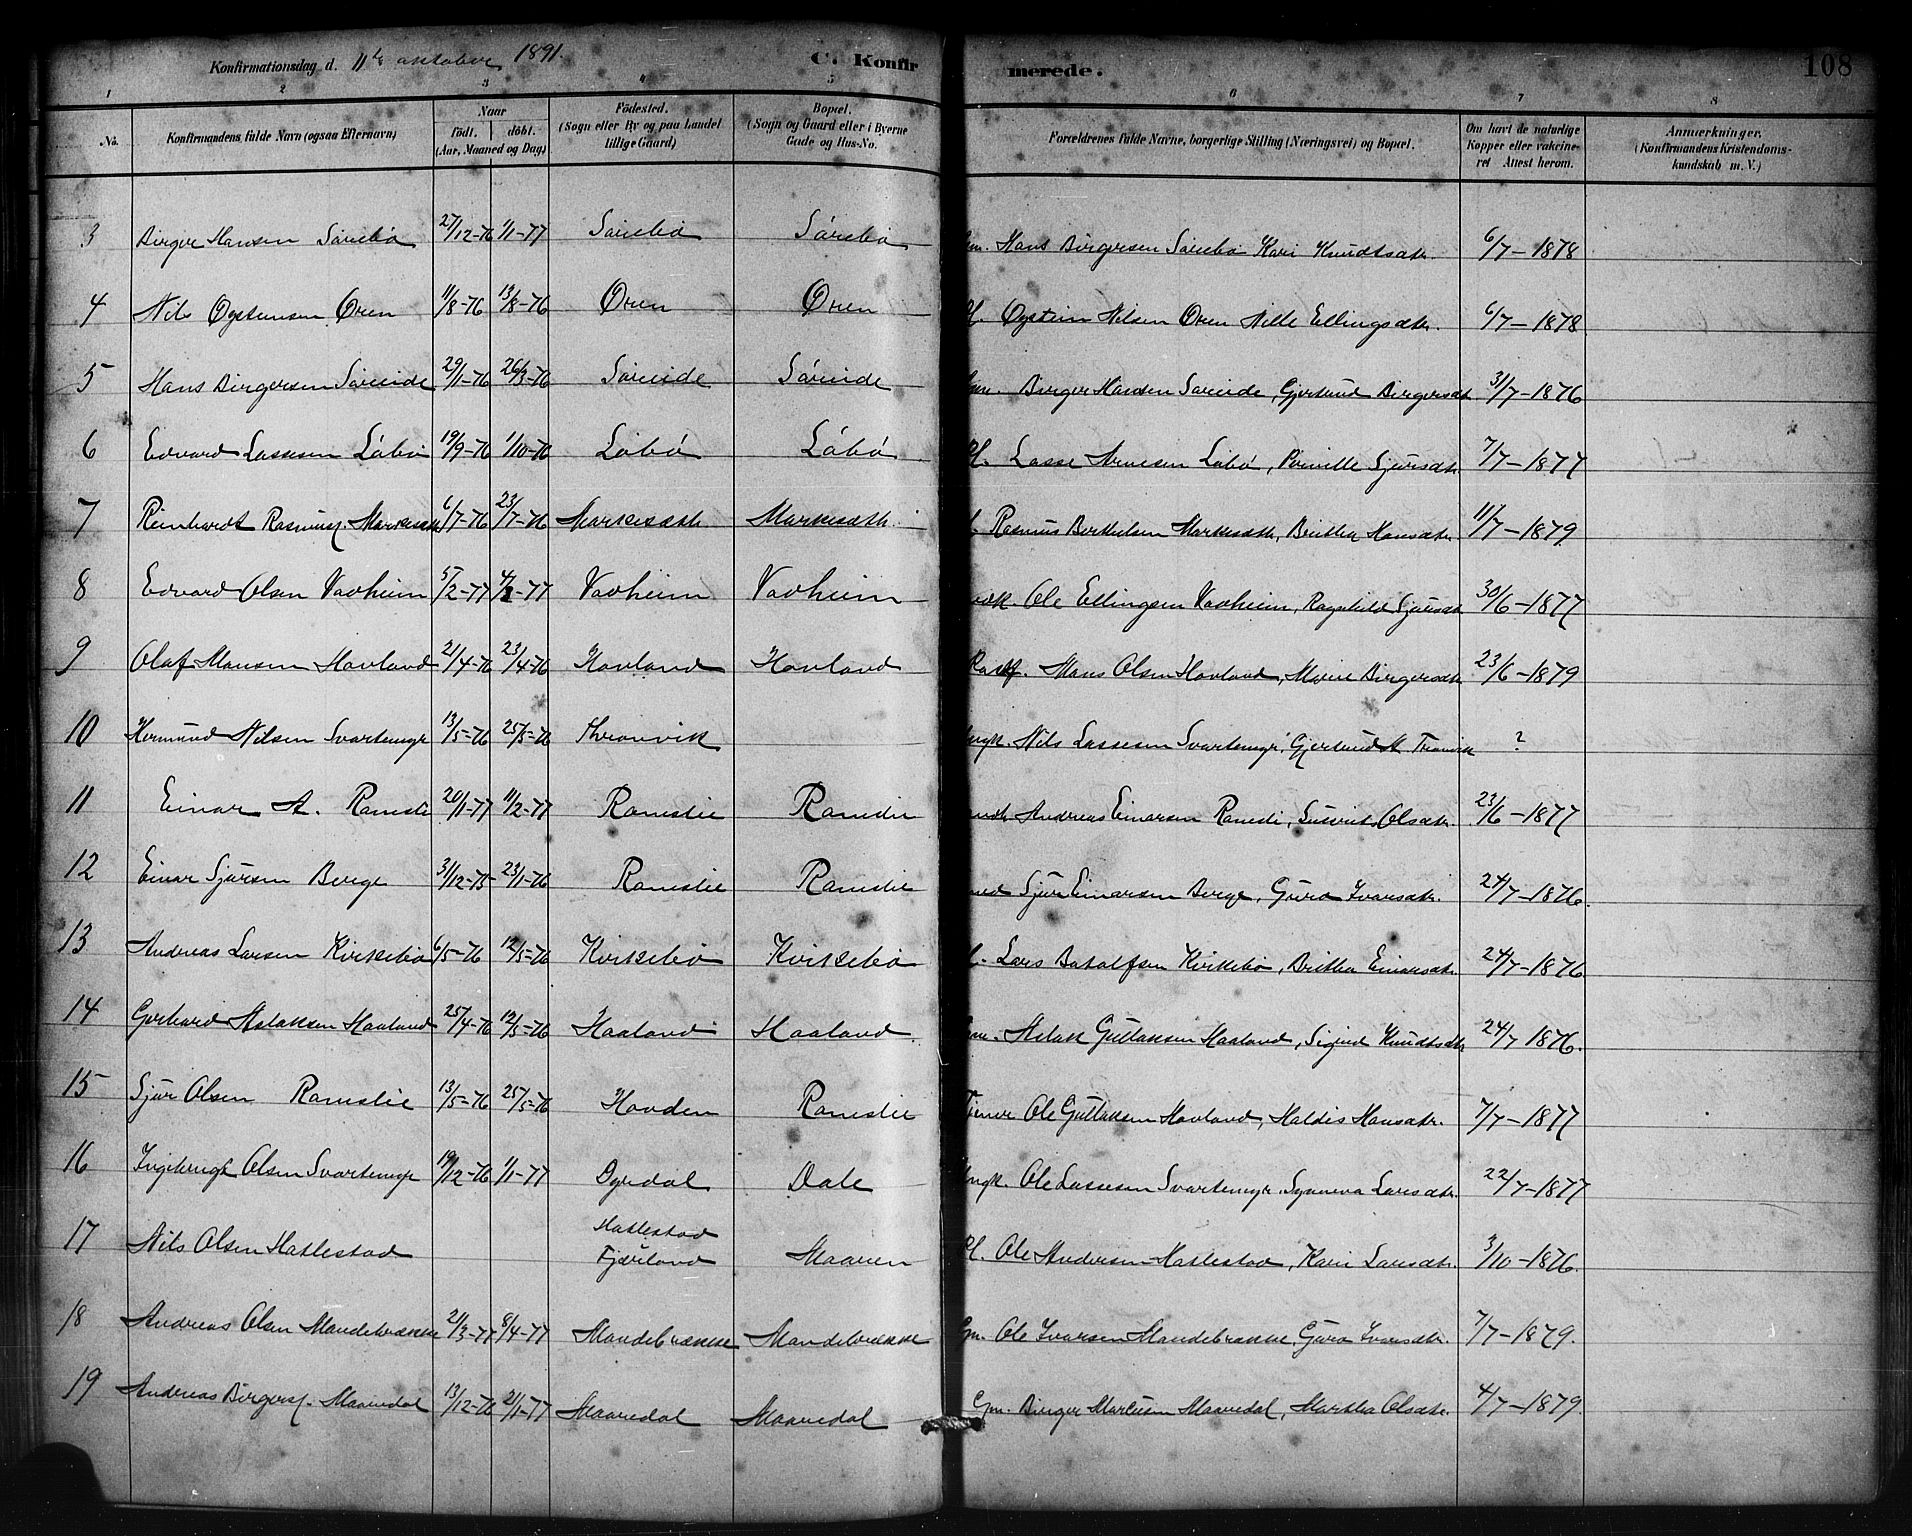 Konfirmationsdag d. 11te oktober 1891. C. Konfirmerede. 108
1 2 3 4 5 6 7 8
No. Konfirmandens fulde Navn (ogsaa Efternavn) Naar født. døbt. (Aar, Maaned og Dag) Fødested. (Sogn eller By og paa Landet tillige Gaard) Bopæl. (Sogn og Gaard eller i Byerne Gade og Hus-No. Forældrenes fulde Navne, borgerlige Stilling (Næringsvei) og Bopæl. Om havt de naturlige Kopper eller vakcineret Attest herom. Anmærkninger. (Konfirmandens Kristendomskundskab m. V.)
3 Birger Hansen Sørebø 27/12-76 1/1-77 Sørebø Sørebø Gm. Hans Birgersen Sørebø Kari Knudtsdtr. 6/7-1878
4 Nils Øystensen Øren 11/8-76 13/8-76 Øren Øren Pl. Øystein Nilsen Øren Nille Ellingsdtr. 6/7-1878
5 Hans Birgersen Søreide 29/1-76 26/3-76 Søreide Søreide Gm. Birger Hansen Søreide, Gjertrud Birgersdtr 31/7-1876
6 Edvard Lassesen Løbø 19/9-76 1/10-76 Løbø Løbø Pl. Lasse Arnesen Løbø, Pernille Sjursdtr. 7/7-1877
7 Reinhardt Rasmus. Markesæth 6/7-76 23/7-76 Markesæth Markesæth. Rasmus Berthelsen Markesæth, Brithe Hansdtr. 11/7-1879.
8 Edvard Olsen Vadheim 5/2-77 4/3-77 Vadheim Vadheim Ole Ellingsen Vadheim, Ragnhild Sjursdtr 30/6-1877
9 Olaf Hansen Hovland 21/4-76 23/4-76 Hovland Hovland Hans Olsen Hovland, Marie Birgersdtr 23/6-1879
10 Hermund Nilsen Svartemyr 13/5-76 25/5-76 Thronvik Ungk. Nils Lassesen Svartemyr, Gjertrud A Tronvik ?
11 Einar A. Ramsli 20/1-77 11/2-77 Ramslie Ramslie Andreas Einarsen Ramsli, Olsdtr. 23/6-1877
12 Einar Sjursen Berge 31/12-75 23/1-76 Ramslie Ramslie Sjur Einarsen Berge, Guro Ivarsdtr. 24/7-1876.
13 Andreas Larsen Kvikkebø 6/5-76 12/5-76 Kvikkebø Kvikkebø Lars Botolfsen Kvikkebø, Brithe Einarsdtr. 24/7-1876
14 Gerhard Aslaksen Haaland 25/4-76 12/5-76 Haaland Haaland. Gm. Aslak Gullaksen Haaland, Sigrid Knudtsdtr 24/7 1876.
15 Sjur Olsen Ramslie 13/5-76 25/5-76 Hovden Ramslie Tjener Ole Gullaksen Hovland, Haldis Hansdtr. 7/7-1877
16 Ingebrigt Olsen Svartemyr 19/12-76 1/1-77 Dyrdal Dale Ungk. Ole Lassesen Svartemyr, Synneva Larsdtr. 22/7-1877
17 Nils Olsen Hatlestad Hatlestad Fjærland Maaren Pl. Ole Andersen Hatlestad, Kari Larsdtr. 3/10-1876.
18 Andreas Olsen Mandebrække 21/3-77 8/4-77 Mandebrække Mandebrække Gm. Ole Ivarsen Mandebrække, Guro Ivarsdtr. 7/7-1879.
19 Andreas Birgers. Maaredal 13/12-76 21/1-77 Maaredal Maaredal Gm. Birger Markusen Maaredal, Martha Olsdtr. 4/7-1879.